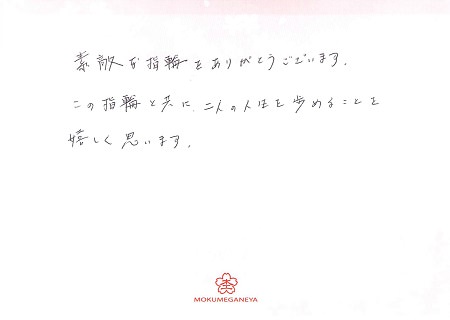 素敵な指輪をありがとうございます。
この指輪と共に、二人の人生を歩めることを
嬉しく思います。
MOKUMEGANEYA